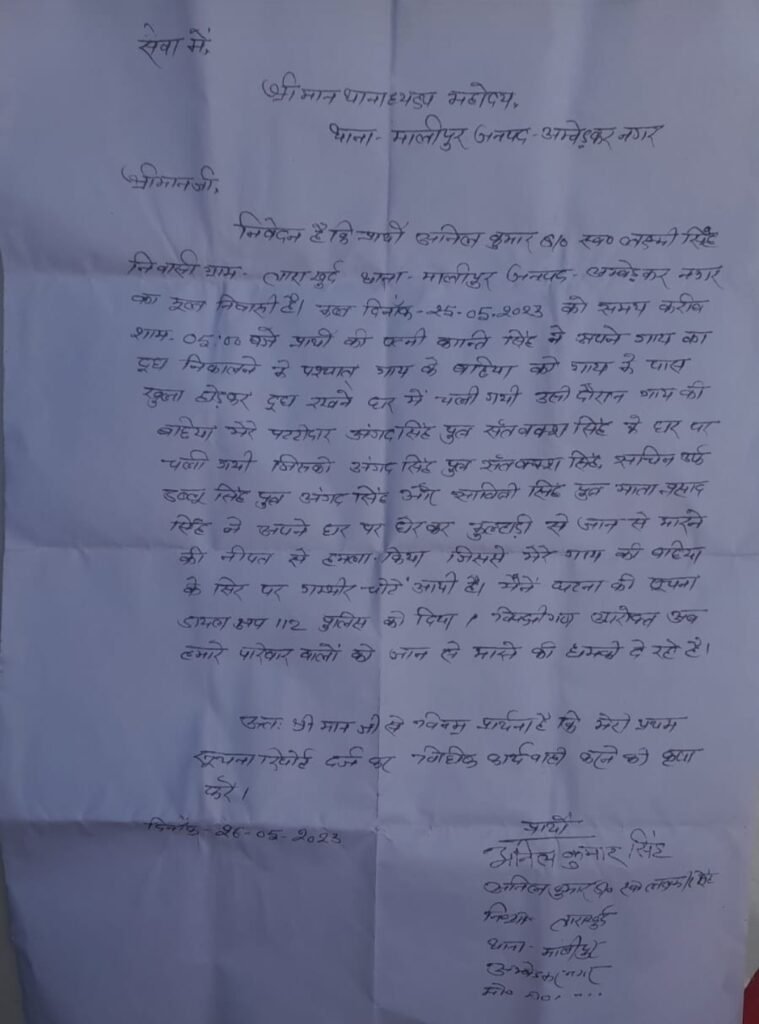 सेवा में,
श्रीमान थानाध्यक्ष महोदय,
थाना- मालीपुर जनपद- अम्बेडकर नगर
श्रीमानजी,
निवेदन है कि प्रार्थी अनिल कुमार S/o स्व० लक्ष्मी सिंह
निवासी ग्राम- ताराखुर्द थाना- मालीपुर जनपद- अम्बेडकर नगर
का मूल निवासी है। दिनाँक- 25.05.2023 को समय करीब
शाम- 05:00 बजे प्रार्थी की पत्नी कान्ति सिंह ने अपने गाय का
दूध निकालने के पश्चात् गाय के बछिया को गाय के पास
खुला छोड़कर दूध रखने घर में चली गयी उसी दौरान गाय की
बछिया मेरे पट्टीदार अंगद सिंह पुत्र संतबक्श सिंह के घर पर
चली गयी जिसको अंगद सिंह पुत्र संतबक्श सिंह, सचिन उर्फ
डब्लू सिंह पुत्र अंगद सिंह और सावित्री सिंह पुत्र माता प्रसाद
सिंह ने अपने घर पर घेरकर कुल्हाड़ी से जान से मारने
की नीयत से हमला किया जिससे मेरे गाय की बछिया
के सिर पर गम्भीर चोटें आयी है। मैंने घटना की सूचना
डायल 112 पुलिस को दिया। अब
हमारे परिवार वालों को जान से मारने की धमकी दे रहे है।
अतः श्री मान जी से विनम्र प्रार्थना है कि मेरी प्रथम
सूचना रिपोर्ट दर्ज कर विधिक कार्यवाही करने की कृपा
करें।
दिनाँक- 26-05-2023
प्रार्थी
अनिल कुमार सिंह
अनिल कुमार S/o स्व० लक्ष्मी सिंह
निवासी- ताराखुर्द
थाना- मालीपुर
अम्बेडकर नगर
मो० नो०....